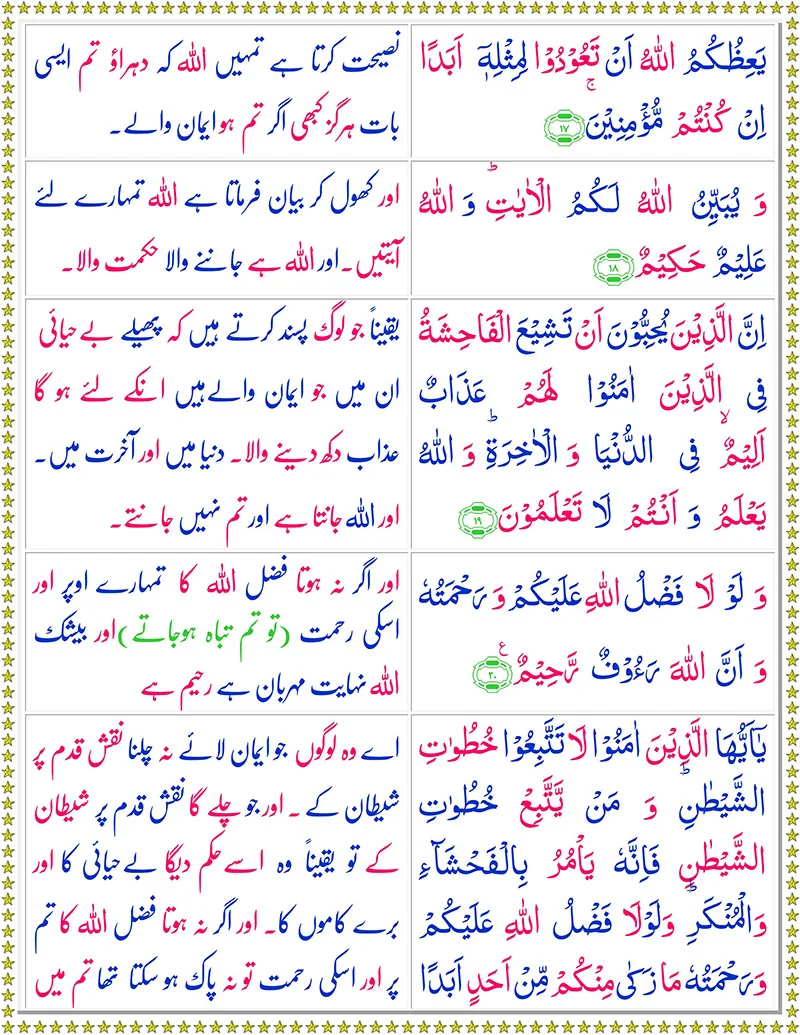 يَعِظُكُمُ اللّٰهُ اَنْ تَعُوْدُوْا لِمِثْلِهٖۤ اَبَدًا
اِنْ كُنْتُمْ مُّؤْمِنِيْنَۚ ۝۱۷
نصیحت کرتا ہے تمہیں اللہ کہ دہراؤ تم ایسی
بات ہرگز کبھی اگر تم ہو ایمان والے۔
وَ يُبَيِّنُ اللّٰهُ لَكُمُ الْاٰيٰتِؕ وَ اللّٰهُ
عَلِيْمٌ حَكِيْمٌ ۝۱۸
اور کھول کر بیان فرماتا ہے اللہ تمہارے لئے
آیتیں۔ اور اللہ ہے جاننے والا حکمت والا۔
اِنَّ الَّذِيْنَ يُحِبُّوْنَ اَنْ تَشِيْعَ الْفَاحِشَةُ
فِى الَّذِيْنَ اٰمَنُوْا لَهُمْ عَذَابٌ
اَلِيْمٌۙ فِى الدُّنْيَا وَ الْاٰخِرَةِؕ وَ اللّٰهُ
يَعْلَمُ وَ اَنْتُمْ لَا تَعْلَمُوْنَ ۝۱۹
یقیناً جو لوگ پسند کرتے ہیں کہ پھیلے بے حیائی
ان میں جو ایمان والے ہیں انکے لئے ہو گا
عذاب دکھ دینے والا۔ دنیا میں اور آخرت میں۔
اور اللہ جانتا ہے اور تم نہیں جانتے۔
وَ لَوْ لَا فَضْلُ اللّٰهِ عَلَيْكُمْ وَ رَحْمَتُهٗ
وَ اَنَّ اللّٰهَ رَءُوْفٌ رَّحِيْمٌ ۝۲۰ ع
اور اگر نہ ہوتا فضل اللہ کا تمہارے اوپر اور
اسکی رحمت (تو تم تباہ ہوجاتے) اور بیشک
اللہ نہایت مہربان ہے رحیم ہے
يٰۤاَيُّهَا الَّذِيْنَ اٰمَنُوْا لَا تَتَّبِعُوْا خُطُوٰتِ
الشَّيْطٰنِؕ وَ مَنْ يَّتَّبِعْ خُطُوٰتِ
الشَّيْطٰنِ فَاِنَّهٗ يَاْمُرُ بِالْفَحْشَآءِ
وَالْمُنْكَرِؕ وَلَوْلَا فَضْلُ اللّٰهِ عَلَيْكُمْ
وَرَحْمَتُهٗ مَا زَكٰى مِنْكُمْ مِّنْ اَحَدٍ اَبَدًا
اے وہ لوگوں جو ایمان لائے نہ چلنا نقش قدم پر
شیطان کے۔ اور جو چلے گا نقش قدم پر شیطان
کے تو یقیناً وہ اسے حکم دیگا بے حیائی کا اور
برے کاموں کا۔ اور اگر نہ ہوتا فضل اللہ کا تم
پر اور اسکی رحمت تو نہ پاک ہو سکتا تھا تم میں